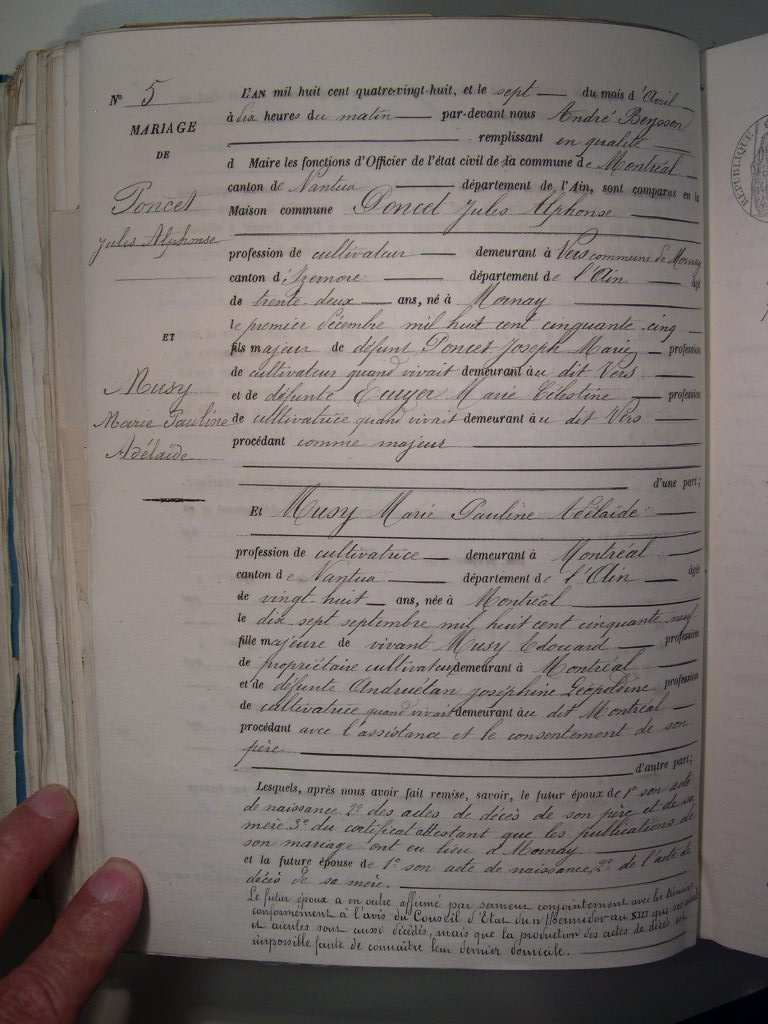 N° 5
MARIAGE
DE
Poncet
Jules Alphonse
ET
Musy
Marie Pauline
Adélaïde
L'AN mil huit cent quatre-vingt-huit, et le sept du mois d'Avril
à dix heures du matin par-devant nous André Beysson
remplissant en qualité
d Maire les fonctions d'Officier de l'état civil de la commune de Montréal
canton de Nantua département de l'Ain, sont comparus en la
Maison commune Poncet Jules Alphonse
profession de cultivateur demeurant à Vers commune de Mornay
canton d'Izernore département de l'Ain âgé
de trente-deux ans, né à Mornay
le premier décembre mil huit cent cinquante cinq
fils majeur de défunt Poncet Joseph Marie profession
de cultivateur quand vivait demeurant au dit Vers
et de défunte Marie Célestine profession
de cultivatrice quand vivait demeurant au dit Vers
procédant comme majeur
d'une part;
Et Musy Marie Pauline Adélaïde
profession de cultivatrice demeurant à Montréal
canton de Nantua département de l'Ain âgée
de vingt-huit ans, née à Montréal
le dix sept septembre mil huit cent cinquante neuf
fille majeure de vivant Musy Edouard profession
de propriétaire cultivateur demeurant à Montréal
et de défunte Andruétan Joséphine Léopoldine profession
de cultivatrice quand vivait demeurant au dit Montréal
procédant avec l'assistance et le consentement de son
père
d'autre part;
Lesquels, après nous avoir fait remise, savoir, le futur époux de 1° son acte
de naissance 2° des actes de décès de son père et de sa
mère 3° du certificat attestant que les publications de
son mariage ont eu lieu à Mornay
et la future épouse de 1° son acte de naissance, 2° de l'acte de
décès de sa mère.
Le futur époux a en outre affirmé par serment conjointement avec les témoins
conformément à l'avis du Conseil d'Etat du n Thermidor an XIII que ses aïeuls
et aïeules sont aussi décédés, mais que la production des actes de décès est
impossible faute de connaître leur dernier domicile.
RÉPUBLIQUE